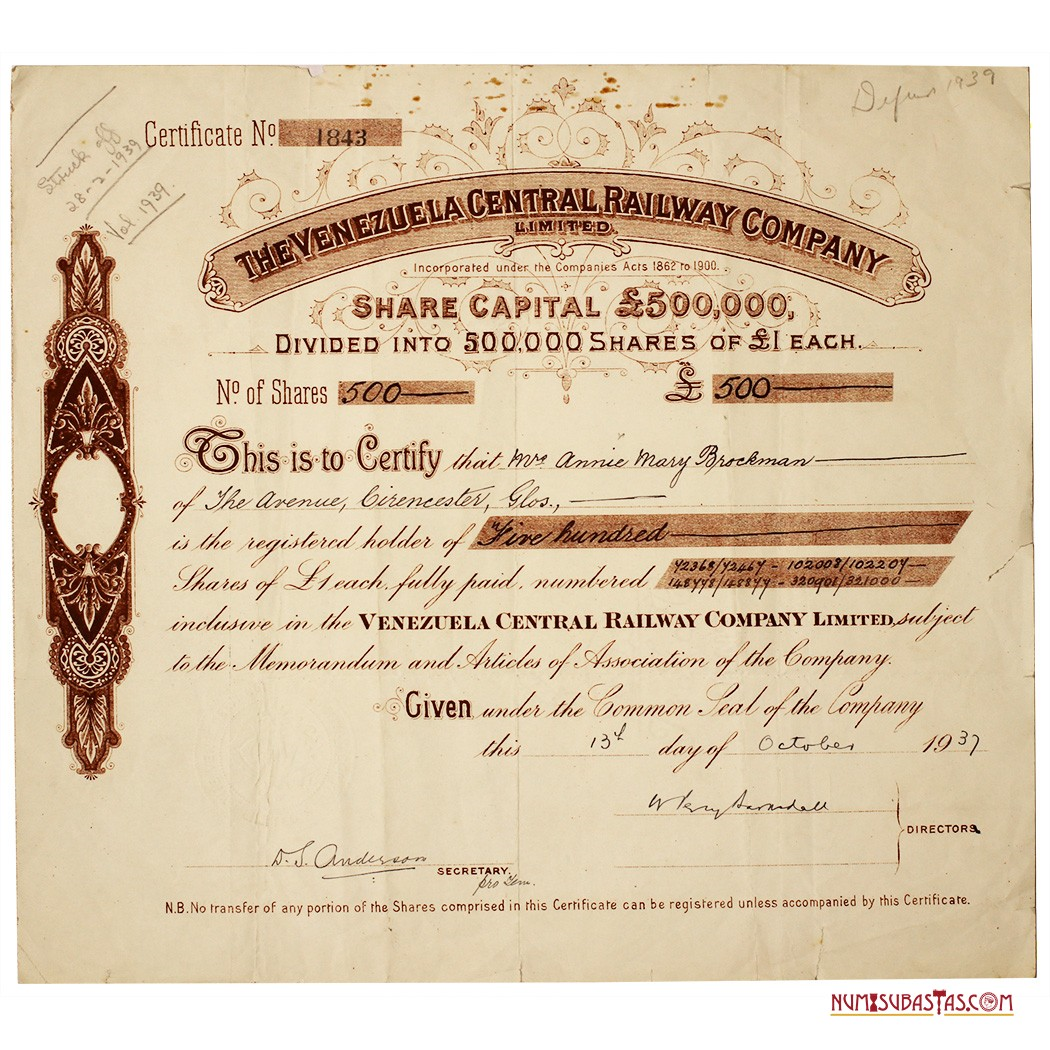 1939
Struck off
28-2-1939
Vol 1939.
Certificate No. 1843
THE VENEZUELA CENTRAL RAILWAY COMPANY
LIMITED.
Incorporated under the Companies Acts 1862 to 1900.
SHARE CAPITAL £500,000,
DIVIDED INTO 500,000 SHARES OF £1 EACH.
No. of Shares 500 £ 500
This is to Certify that Mrs Annie Mary Brockman
of The Avenue, Cirencester, Glos.,
is the registered holder of "Five hundred
Shares of £1 each, fully paid, numbered 72368/72467 - 102008/102207
148778/148877 - 320901/321000
inclusive in the VENEZUELA CENTRAL RAILWAY COMPANY LIMITED, subject
to the Memorandum and Articles of Association of the Company.
Given under the Common Seal of the Company
this 13th day of October 1937
DIRECTORS.
D. S. Anderson SECRETARY.
pro tem.
N.B. No transfer of any portion of the Shares comprised in this Certificate can be registered unless accompanied by this Certificate.
NUMISUBASTAS.COM